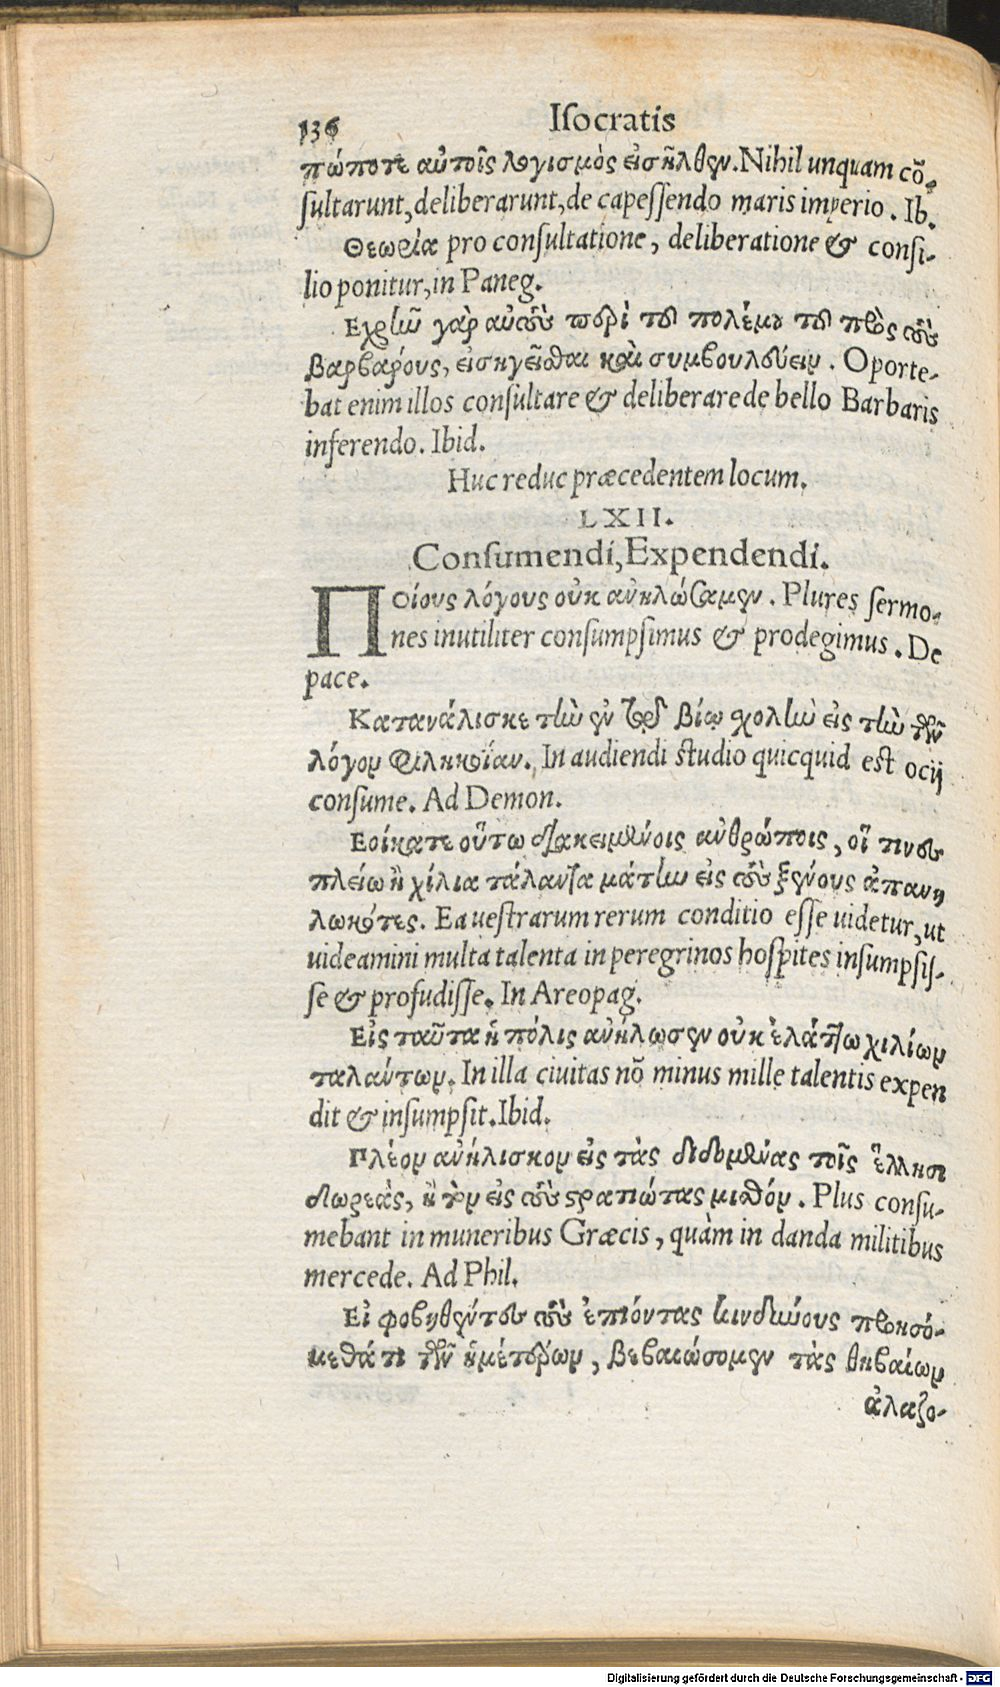 136 Iſocratis
πώποτε αὐτοῖς λογισμὸς εἰσῆλθεν. Nihil unquam cõ-
ſultarunt, deliberarunt, de capeſſendo maris imperio. Ib.
Θεωρία pro conſultatione, deliberatione & conſi-
lio ponitur, in Paneg.
Εχρῆν γὰρ αὐτοὺς περὶ τοῦ πολέμου τοῦ πρὸς τοὺς
βαρβάρους, εἰσηγεῖσθαι καὶ συμβουλεύειν. Oporte-
bat enim illos conſultare & deliberare de bello Barbaris
inferendo. Ibid.
Huc reduc præcedentem locum.
LXII.
Conſumendi, Expendendi.
Πλείους λόγους οὐκ ἀνηλώσαμεν. Plures ſermo-
nes inutiliter conſumpſimus & prodegimus. De
pace.
Κατανάλισκε τὴν ἐν τῷ βίῳ σχολὴν εἰς τὴν τῶν
λόγων φιληκοΐαν. In audiendi ſtudio quicquid eſt ocij
conſume. Ad Demon.
Εοίκατε οὕτω διακειμένοις ἀνθρώποις, οἵ τινες
πλείω ἢ χίλια τάλαντα μάτην εἰς τοὺς ξένους ἀπανη
λωκότες. Ea ueſtrarum rerum conditio eſſe uidetur, ut
uideamini multa talenta in peregrinos hoſpites inſumpſiſ-
ſe & profudiſſe. In Areopag.
Εἰς ταῦτα ἡ πόλις ἀνήλωσεν οὐκ ἐλάττω χιλίων
ταλάντων. In illa ciuitas nõ minus mille talentis expen
dit & inſumpſit. Ibid.
Πλέον ἀνήλισκον εἰς τὰς διδομένας τοῖς ἕλλησι
δωρεὰς, ἢ τὸν εἰς τοὺς στρατιώτας μισθόν. Plus conſu-
mebant in muneribus Græcis, quàm in danda militibus
mercede. Ad Phil.
Εἰ φοβηθέντες τοὺς ἐπιόντας κινδύνους προησό-
μεθά τι τῶν ἡμετέρων, βεβαιώσομεν τὰς θηβαίων
ἀλαζο-
Digitalisierung gefördert durch die Deutsche Forschungsgemeinschaft - DFG